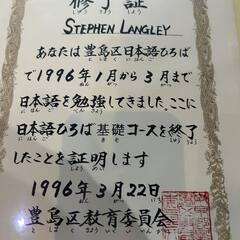 修了証
STEPHEN LANGLEY
あなたは豊島区日本語ひろば
で1996年1月から3月まで
日本語を勉強してきました。ここに
日本語ひろば基礎コースを終了
したことを証明します
1996年3月22日
豊島区教育委員会